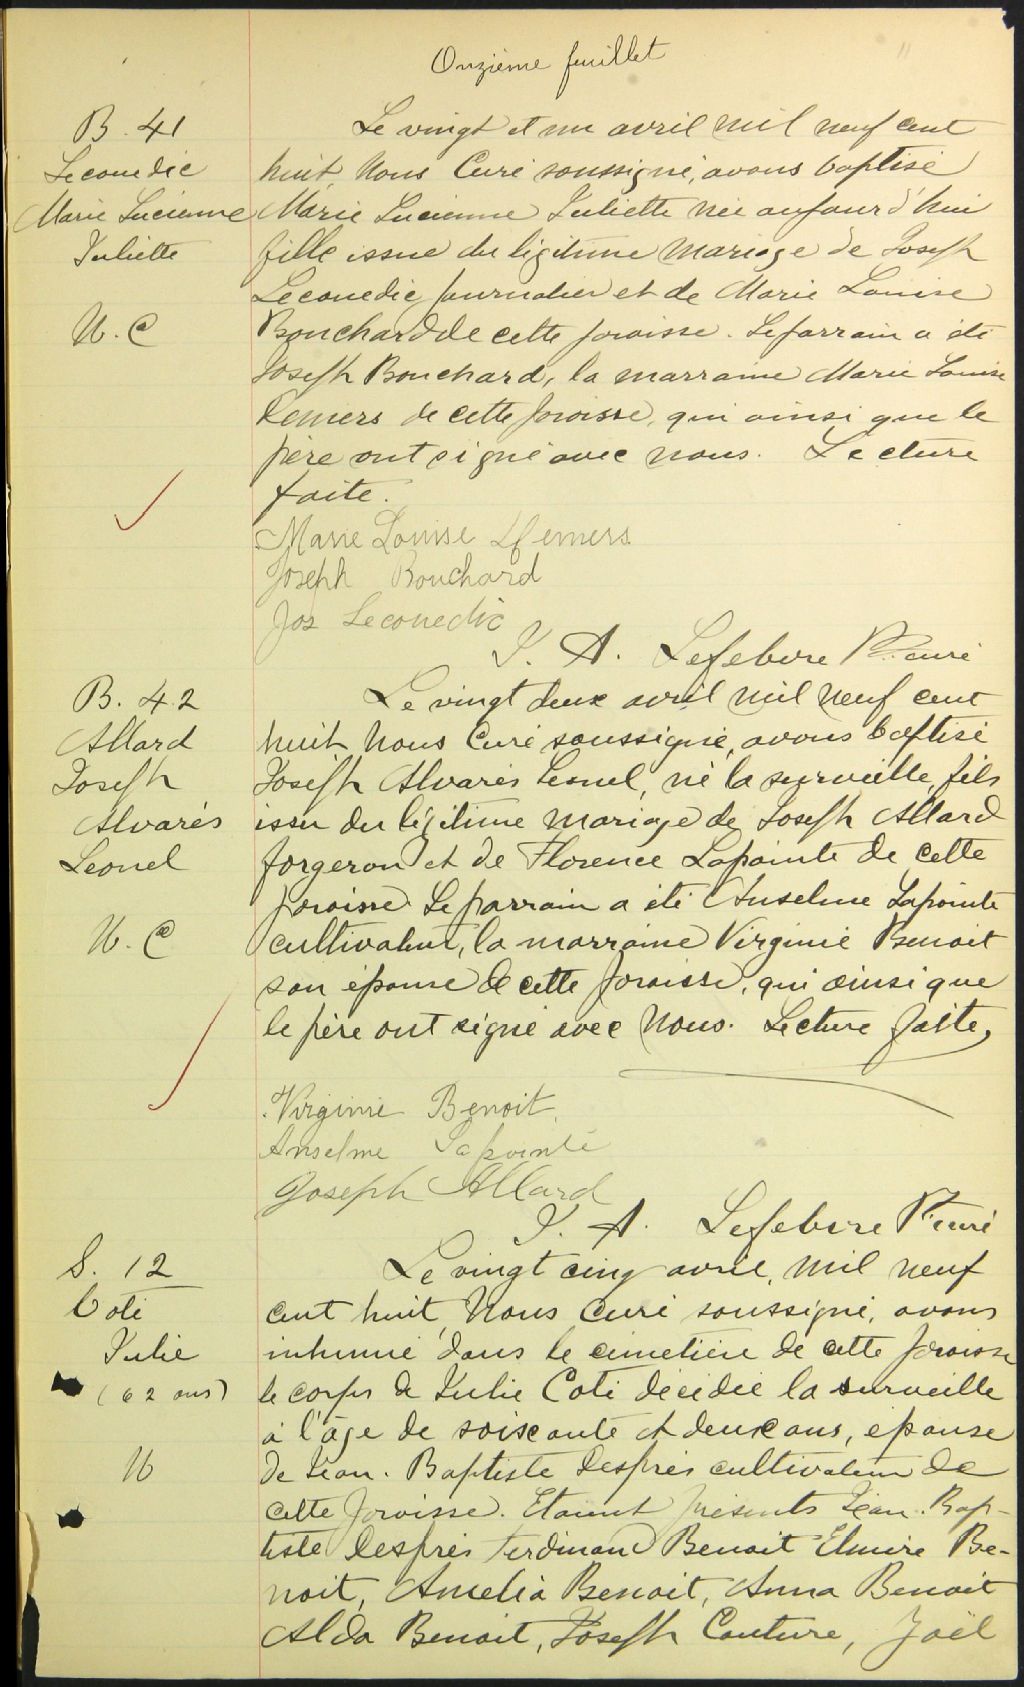 Onzième feuillet
11
B. 41
Leconedic
Marie Lucienne
Juliette
N. C
Le vingt et un avril mil neuf cent
huit, Nous Curé soussigné, avons baptisé
Marie Lucienne Juliette née aujourd'hui
fille issue du légitime mariage de Joseph
Leconedic journalier et de Marie Louise
Bouchard de cette paroisse. Le parrain a été
Joseph Bouchard, la marraine Marie Louise
Demers de cette paroisse, qui ainsi que le
père ont signé avec nous. Lecture
faite.
Marie Louise Demers
Joseph Bouchard
Jos Leconedic
J. A. Lefebvre Ptre curé
B. 42
Allard
Joseph
Alvarès
Leonel
N. C
Le vingt deux avril mil neuf cent
huit Nous Curé soussigné, avons baptisé
Joseph Alvarès Leonel, né la surveille, fils
issu du légitime mariage de Joseph Allard
forgeron et de Florence Lapointe de cette
paroisse. Le parrain a été Anselme Lapointe
cultivateur, la marraine Virginie Benoit
son épouse de cette paroisse, qui ainsi que
le père ont signé avec Nous. Lecture faite,
Virginie Benoit
Anselme Lapointe
Joseph Allard
J. A. Lefebvre Ptre curé
S. 12
Coté
Julie
(62 ans)
N
Le vingt cinq avril, mil neuf
cent huit, Nous curé soussigné, avons
inhumé dans le cimetière de cette paroisse
le corps de Julie Coté décédée la surveille
à l'âge de soixante et deux ans, épouse
de Jean-Baptiste Desprès cultivateur de
cette paroisse. Étaient présents Jean-Bap-
tiste Desprès Ferdinand Benoit Elmire Be-
noit, Amelia Benoit, Anna Benoit
Alda Benoit, Joseph Couture, Joël